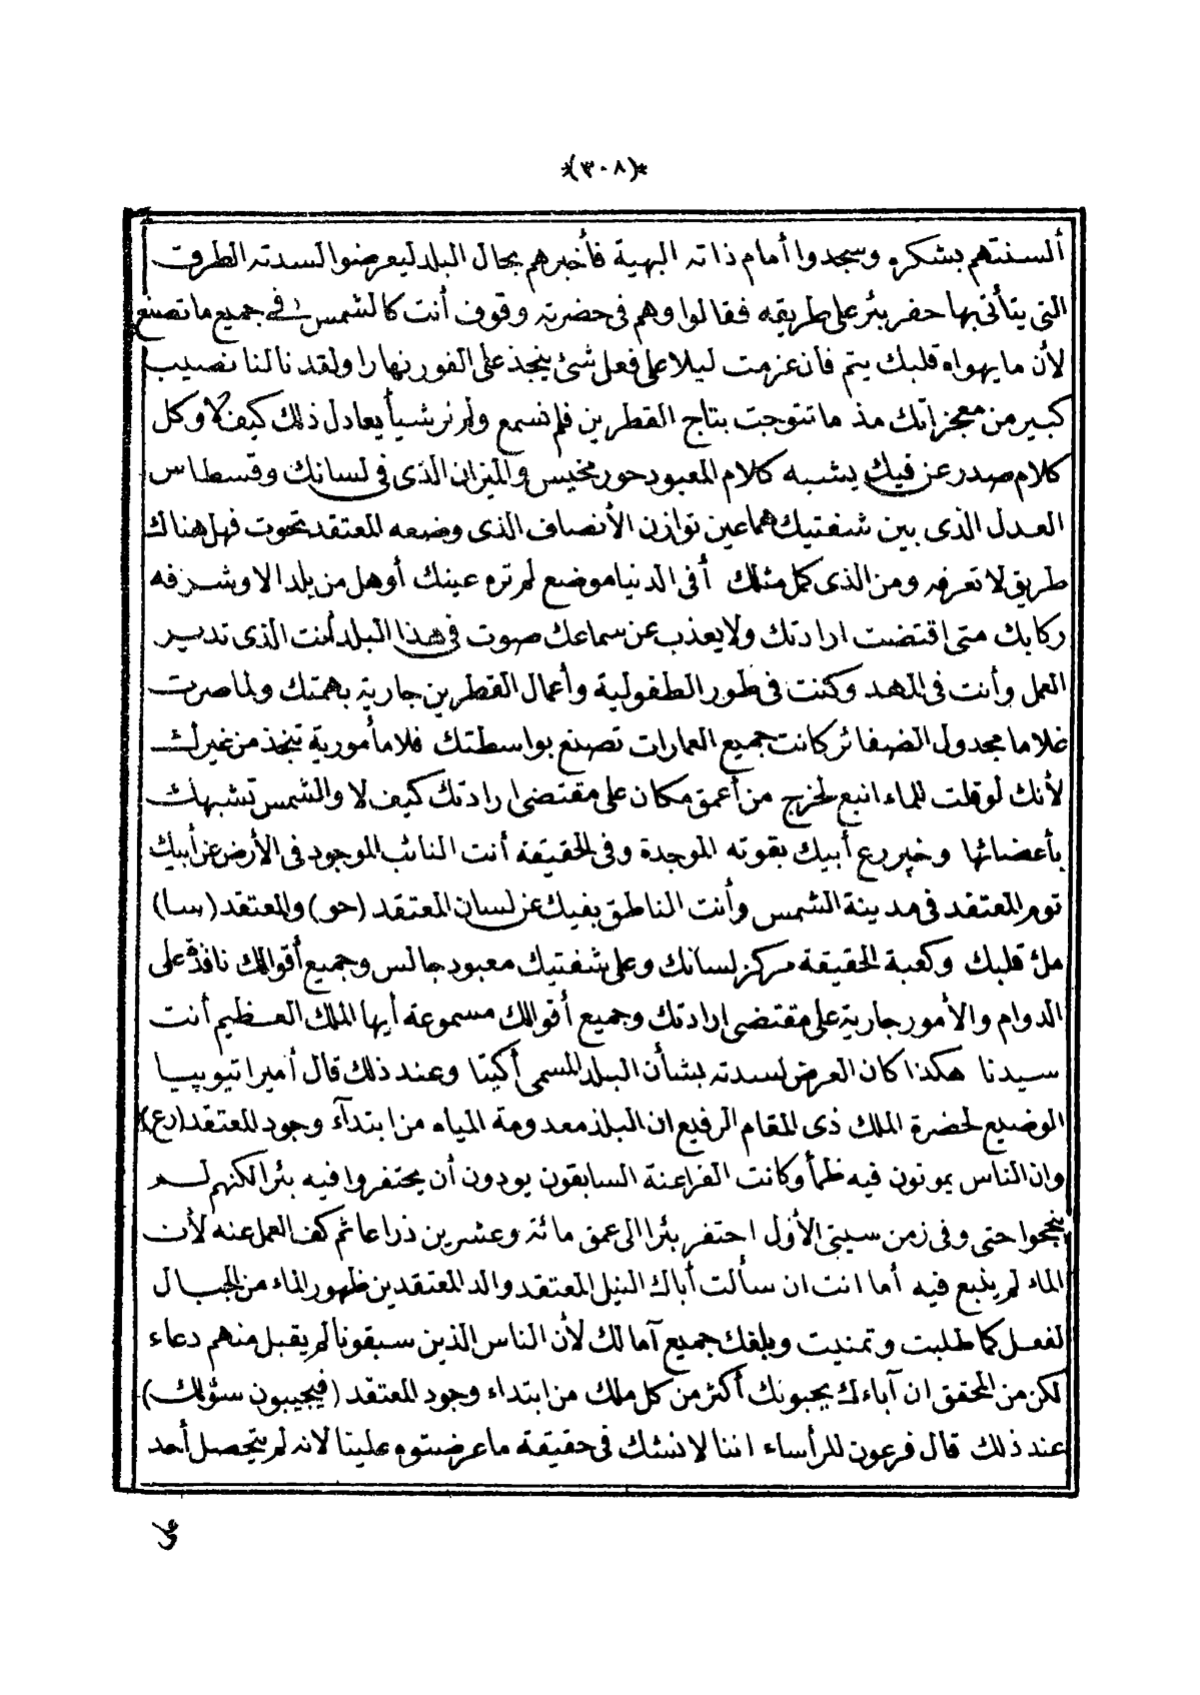 *(٣٠٨)*
ألسنتهم بشكره وسجدوا أمام ذاته البهية فأخبرهم بحال البلد ليعرضوا لسدته الطرق
التى يتأتى بها حفر بئر على طريقه فقالوا وهم فى حضرته وقوف أنت كالشمس فى جميع ما تصنع
لأن ما يهواه قلبك يتم فان عزمت ليلا على فعل شئ ينجذ على الفور نهارا ولقد نالنا نصيب
كبير من معجزاتك مذ ما تتوجت بتاج القطرين فلم نسمع ولم نر شيأ يعادل ذلك كيف لا وكل
كلام صدر عن فيك يشبه كلام المعبود حور مخيس والميزان الذى فى لسانك وقسطاس
العدل الذى بين شفتيك هما عين توازن الأنصاف الذى وضعه المعتقد تحوت فهل هناك
طريق لا تعرفه ومن الذى كمل مثلك أفى الدنيا موضع لم تره عينك أو هل من بلد الا وشرفه
ركابك متى اقتضت ارادتك ولا يعذب عن سماعك صوت فى هذا البلد أنت الذى تدير
العمل وأنت فى المهد وكنت فى طور الطفولية وأعمال القطرين جارية بهمتك ولما صرت
غلاما مجدول الضفائر كانت جميع العمارات تصنع بواسطتك فلا مأمورية تنجذ من غيرك
لأنك لو قلت للماء انبع لخرج من أعمق مكان على مقتضى ارادتك كيف لا والشمس تشبهك
بأعضائها وخپر رع أبيك بقوته الموجدة وفى الحقيقة أنت النائب الموجود فى الأرض عن أبيك
توم المعتقد فى مدينة الشمس وأنت الناطق بفيك عن لسان المعتقد (حو) والمعتقد (سا)
ملؤ قلبك وكعبة الحقيقة مركز لسانك وعلى شفتيك معبود جالس وجميع أقوالك نافذة على
الدوام والأمور جارية على مقتضى ارادتك وجميع أقوالك مسموعة أيها الملك العظيم أنت
سيدنا هكذا كان العرض لسدته بشأن البلد المسمى أكيتا وعند ذلك قال أمير اتيوپيا
الوضيع لحضرة الملك ذى المقام الرفيع ان البلد معدومة المياه من ابتدآء وجود المعتقد (رع)
وان الناس يموتون فيه ظمأ وكانت الفراعنة السابقون يودون أن يحتفروا فيه بئرا لكنهم لم
ينجحوا حتى وفى زمن سيتى الأول احتفر بئرا الى عمق مائة وعشرين ذراعا ثم كف العمل عنه لأن
الماء لم ينبع فيه أما انت ان سألت أباك النيل المعتقد والد المعتقدين ظهور الماء من الجبال
لفعل كما طلبت وتمنيت وبلغك جميع آمالك لأن الناس الذين سبقونا لم يقبل منهم دعاء
لكن من المحقق ان آباءك يحبونك أكثر من كل ملك من ابتداء وجود المعتقد (فيجيبون سؤلك)
عند ذلك قال فرعون للرأساء اننا لا نشك فى حقيقة ما عرضتوه علينا لانه لم يتحصل أحد
على